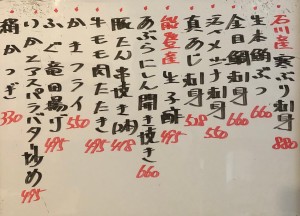 石川産 寒ぶり刺身 880
生本鮪ぶつ 660
金目鯛刺身 660
活〆メ出け刺身 550
真あじ刺身 528
能登産 生子酢 495
あぶらにしん開き焼き 660
豚たん串焼き(肉) 418
牛モモ肉たたき 495
かきフライ 550
ふぐ竜田揚げ 495
いかとアスパラバター炒め 495
絹かつぎ 330